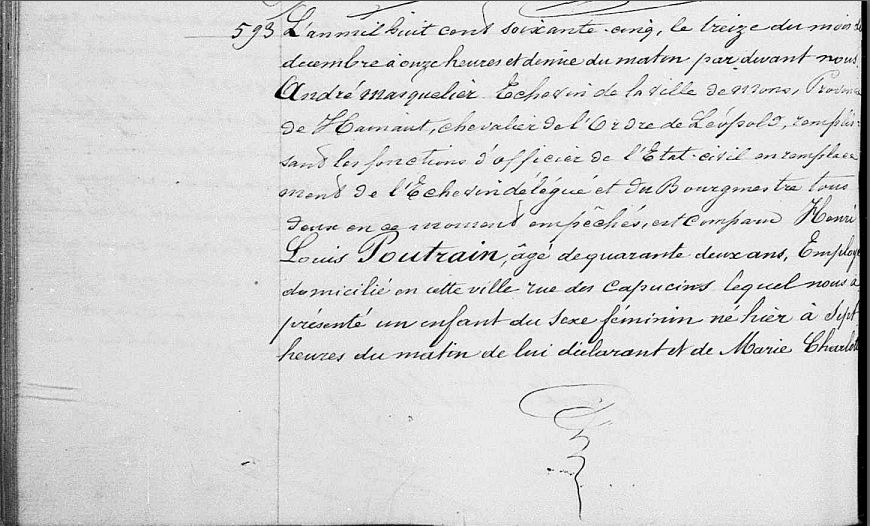 593 L'an mil huit cent soixante-cinq, le treize du mois de
décembre à onze heures et demie du matin par devant nous
André Masquelier Echevin de la ville de Mons, Province
de Hainaut, chevalier de l'Ordre de Léopold, remplis-
sant les fonctions d'officier de l'Etat-civil en remplace
ment de l'Echevin délégué et du Bourgmestre tous
deux en ce moment empêchés, est comparu Henri
Louis Poutrain, âgé de quarante deux ans, Employé
domicilié en cette ville rue des Capucins lequel nous a
présenté un enfant du sexe féminin né hier à sept
heures du matin de lui déclarant et de Marie Charlotte